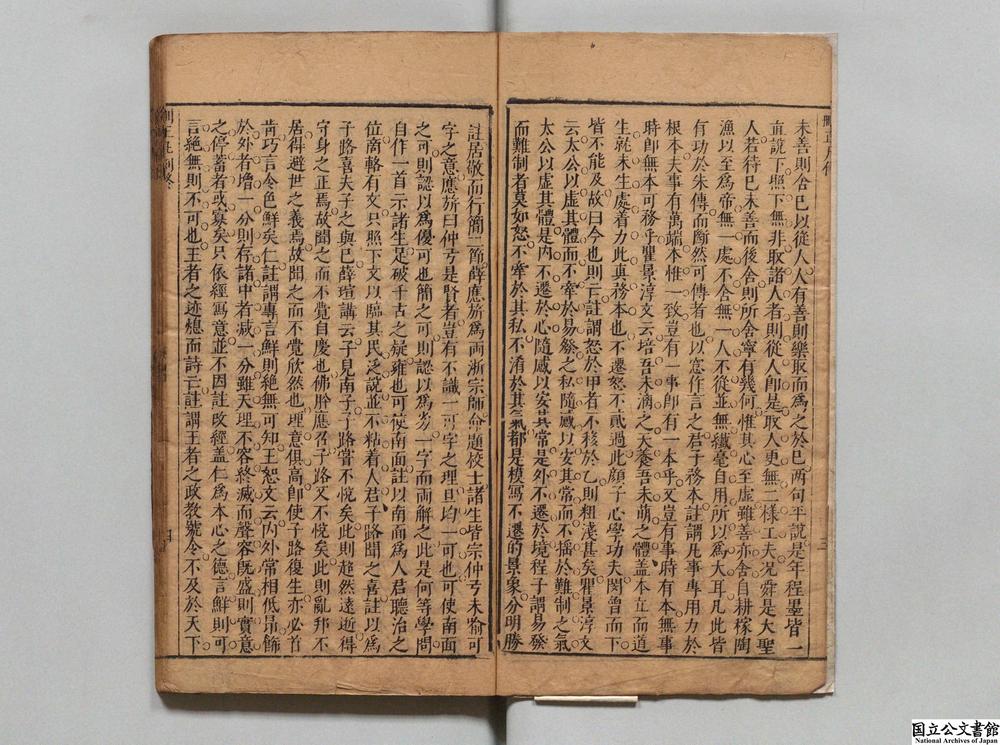 未善則舍己以從人人有善則樂取而爲之於己两句平說是年程墨皆一
直說下照下無非取諸人者則從人卽是取人更無二樣工夫况舜是大聖
人若待己未善而後舍則所舍寧有幾何惟其心至虛雖善亦舍自耕稼陶
漁以至爲帝無一處不舍無一人不從並無纖毫自用所以爲大耳凡此皆
有功於朱傳而斷然可傳者也以意作言之君子務本註謂凡事專用力於
根本夫事有萬端本惟一致豈有一事卽有一本乎又豈有事時有本無事
時卽無本可務乎瞿景淳文云培吾未漓之天養吾未萌之體盖本立而道
生就未生處着力此真務本也不遷怒不貳過此顏子心學功夫閔曾而下
皆不能及故曰今也則亡註謂怒於甲者不移於乙則粗淺甚矣瞿景淳文
云太公以虛其體而不牽於易發之私隨感以安其常而不揺於難制之氣
太公以虛其體是内不遷於心隨感以安其常是外不遷於境程子謂易發
而難制者莫如怒不牽於其私不淆於其氣都是模寫不遷的景象分明勝
註居敬而行簡二節薛應旂爲两浙宗師命題校士諸生皆宗仲弓未喻可
字之意應旂曰仲弓是賢者豈有不識一可字之理且均一可也可使南面
之可則認以爲優可也簡之可則認以爲劣一字而两解之此是何等學問
自作一首示諸生足破千古之疑雍也可使南面註以南面爲人君聽治之
位商輅有文只照下文以臨其民泛說並不粘着人君子路聞之喜註以爲
子路喜夫子之與己薛瑄講云子見南子子路嘗不悅矣此則超然遠逝得
守身之正焉故聞之而不覺自慶也佛肸應召子路又不悅矣此則亂邦不
居得避世之義焉故聞之而不覺欣然也理意俱高卽使子路復生亦必首
肯巧言令色鮮矣仁註謂專言鮮則絶無可知王恕文云内外常相低昻餙
於外者增一分則存諸中者减一分雖天理不容終滅而聲容旣盛則實意
之停蓄者或寡矣只依經寫意並不因註改經盖仁爲本心之德言鮮則可
言絶無則不可也王者之迹熄而詩亡註謂王者之政教號令不及於天下
国立公文書館
National Archives of Japan